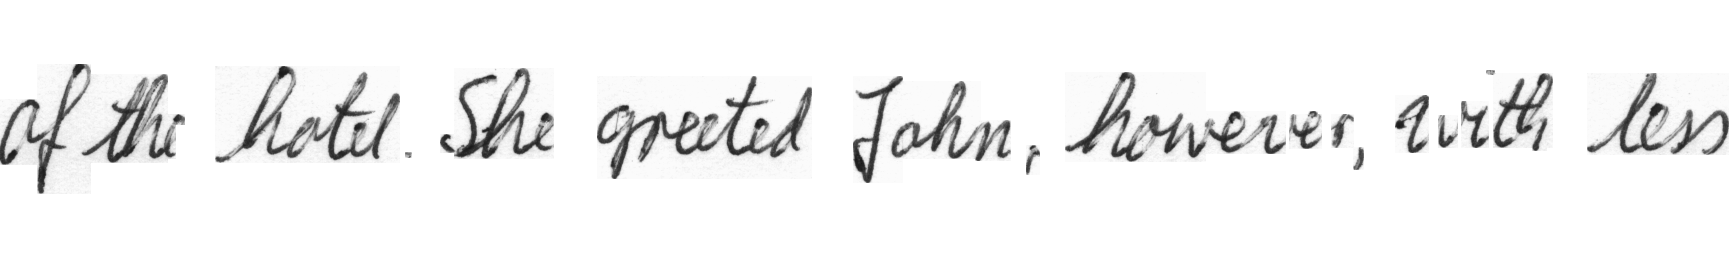 of the hotel. She greeted John, however, with less